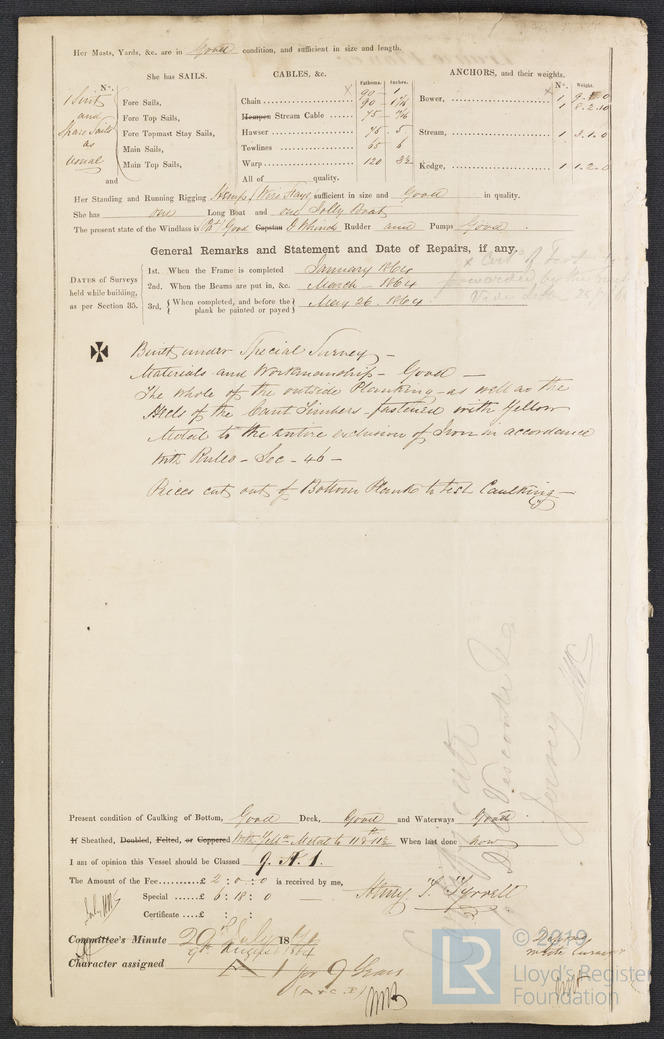 Her Masts, Yards, &c. are in Good condition, and sufficient in size and length.
She has SAILS.
CABLES, &c.
Fathoms. Inches.
ANCHORS, and their weights.
No.
No. Weight.
1 Suit
and
Spare Sails
as
usual
Fore Sails,
Fore Top Sails,
Fore Topmast Stay Sails,
Main Sails,
Main Top Sails,
and
Chain 90 - 1
90 -
Hempen Stream Cable 75 -
Hawser 75 - 5
Towlines 65 6
Warp 120 3½
All of quality.
Bower, 1
1 8.2.10
Stream, 1 3.1.0
Kedge, 1 1.2.0
Her Standing and Running Rigging Hemp & Wire Stays sufficient in size and Good in quality.
She has one Long Boat and one Jolly Boat
The present state of the Windlass is Pat Good Capstan & Winch Rudder and Pumps Good.
General Remarks and Statement and Date of Repairs, if any.
DATES of Surveys
held while building,
as per Section 35.
1st. When the Frame is completed January 1864
2nd. When the Beams are put in, &c. March - 1864
3rd. When completed, and before the
plank be painted or payed May 26. 1864.
Built under Special Survey -
Materials and Workmanship - Good -
The whole of the outside Planking - as well as the
Heels of the Cant Timbers - fastened with Yellow
Metal to the entire exclusion of Iron in accordance
with Rules - Sec - 46 -
Pieces cut out of Bottom Plank to test Caulking -
Jersey
Present condition of Caulking of Bottom, Good Deck, Good and Waterways Good.
If Sheathed, Doubled, Felted, or Coppered With Yellw Metal to When last done now
I am of opinion this Vessel should be Classed 9. A. 1.
The Amount of the Fee £ 2 : 0 : 0 is received by me,
Special £ 6 : 18 : 0
Certificate £ :
Henry T. Tyrrell
Committee's Minute 29th July 18
9th August 1864
Character assigned A 1 for 9 Years
© 2019
Lloyd's Register
Foundation
LR